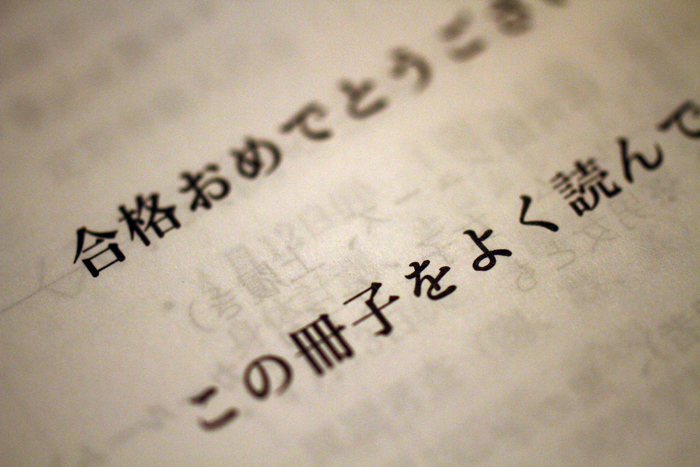 合格おめでとうござ
この冊子をよく読んで